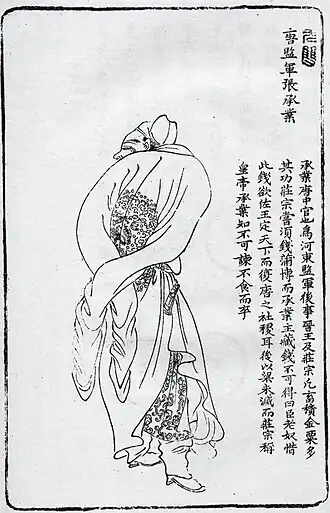 唐監軍張承業
承業唐中官也為河東監軍後事晉王及莊宗凡畜積金粟多
其功莊宗嘗須錢蒲博而承業主藏錢不可得曰臣老奴惜
此錢欲佐王定天下而復唐之社稷耳後以梁未滅而莊宗稱
皇帝承業知不可諫不食而卒